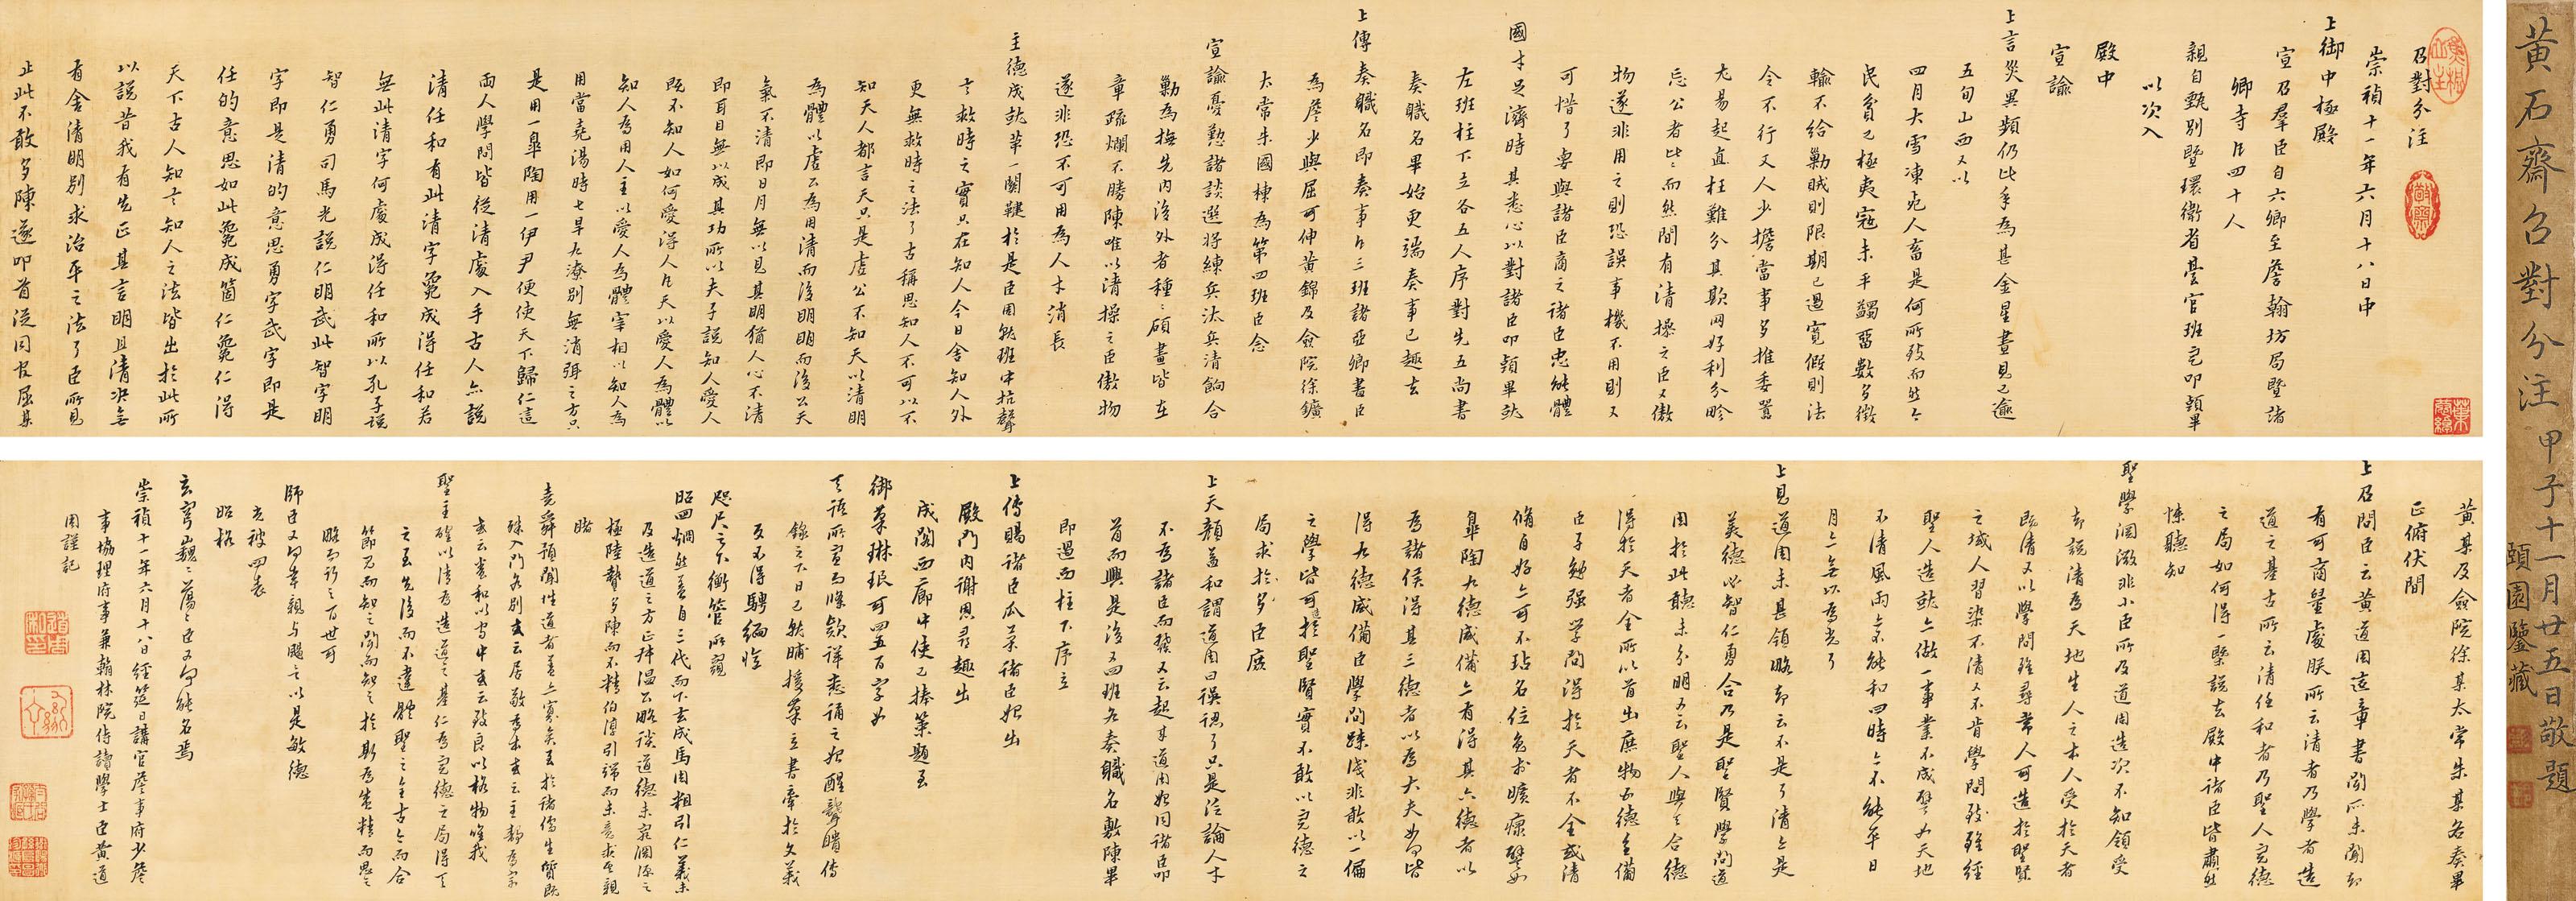 召對分注
崇禎十一年六月十八日中
上御中極殿
宣召羣臣自六卿至詹翰坊局暨諸
卿寺臣四十人
親自甄別暨環衛省臺官班定叩頭畢
以次入
殿中
宣諭
上言災異頻仍此年為甚金星晝見已逾
五旬山西又以
四月大雪凍死人畜是何所致而然今
民貧已極夷寇未平蠲留數多徵
輸不給勦賊則限期已過寬假則法
令不行天人少擔當事多推委囂
尤易起直枉難分其欺罔好利分畛
忘公者比比而然間有清操之臣又傲
物遂非用之則恐誤事機不用則又
可惜了要與諸臣商之諸臣忠能體
國才足濟時其悉心以對諸臣叩頭畢就
左班柱下立各五人序對先五尚書
奏職名畢始更端奏事已趨去
上傳奏職名即奏事臣三班諸亞卿書臣
為詹少與屈可伸黃錦及僉院徐鑛
太常朱國棟為第四班臣念
宣諭憂懃諸談選將練兵汰兵清餉合
勦為撫先內後外者種種碩畫皆在
章疏爛不勝陳唯以清操之臣傲物
遂非恐不可用為人才消長
主德成就第一關鍵於是臣周就班中抗聲
言救時之實只在知人今日舍知人外
更無救時之法了古稱思知人不可以不
知天人都言天只是虛公不知天以清明
為體以虛公為用清而後明明而後公天
氣不清即日月無以見其明猶人心不清
即耳目無以成其功所以夫子說知人愛人
既不知人如何愛得人臣天以愛人為體以
知人為用人主以愛人為體宰相以知人為
用當堯湯時七旱九潦別無消弭之方只
是用一臯陶用一伊尹便使天下歸仁這
兩人學問皆從清處入手古人亦說
清任和有此清字纔成得任和若
無此清字何處成得任和所以孔子說
智仁勇司馬光說仁明武此智字明
字即是清的意思勇字武字即是
任的意思如此纔成箇仁纔仁得
天下古人知言知人之法皆出於此所
以說昔我有先正其言明且清決無
有舍清明別求治平之法了臣所見
止此不敢多陳遂叩首從同官屈某
黃某及僉院徐某太常朱某各奏畢
正俯伏間
上召問臣云黃道周這章書聞所未聞亦
有可商量處朕所云清者乃學者造
道之基古所云清任和者乃聖人完德
之局如何得一槩說去殿中諸臣皆肅然
悚聽知
聖學淵微非小臣所及道周造次不知領受
亦說清為天地生人之本人受於天者
既清又以學問雖尋常人可造於聖賢
之域人習染不清又不肯學問致雖經
聖人造就亦做一事業不成譬如天地
不清風雨亦不能和四時亦不能年日
月亦無以為光了
上見道周未甚領略亦云不是了清亦是
美德必智仁勇合乃是聖賢學問道
周於此聽未分明又云聖人與天合德
得於天者全所以首出庶物五德全備
臣子勉強學問得於天者不全或清
脩自好亦可不玷名位免於曠瘝譬如
臯陶九德咸備亦有得其六德者以
為諸侯得其三德者以為大夫如何皆
得九德咸備臣學問疎淺非敢以一偏
之學皆可造於聖賢實不敢以完德之
局求於多臣底
上天顏益和謂道周曰誤認了只是泛論人才
不為諸臣而發又云起來道周始同諸臣叩
首而興是後又四班各奏職名敷陳畢
即過西柱下序立
上傳賜諸臣瓜菓諸臣始出
殿門內謝恩尋趨出
成閣西廊中使已捧策題至
御菓琳琅可四五百字如
天語所宣而條款詳悉誦之始醒聾瞶傳
錄之下日已就晡援筆立書牽於文義
反不得騁緬惟
咫尺之下衡管所窺
昭回炳然蓋自三代而下玄成馬周粗引仁義未
及造道之方正拜溫公略談道德未窮淵源之
極陸贄多陳而不精伯淳引端而未意求至親
睹
堯舜預聞性道者蓋亦寡矣至於諸儒生質既
殊入門各別或云居敬為本或云主靜為宗
或云養和以守中或云致良以格物唯我
聖主確以清為造道之基仁為完德之局得天
之至先後而不違體聖之全古今而合
節見而知之聞而知之於斯為甚精而思之
略而行之百世可
師臣又何幸親與颺之以是敏德
光被四表
昭格
玄穹巍巍蕩蕩臣又何能名焉
崇禎十一年六月十八日經筵日講官詹事府少詹
事協理府事兼翰林院侍讀學士臣黃道
周謹記
黃石齋召對分注 甲子十一月廿五日敬題
頤園鑒藏